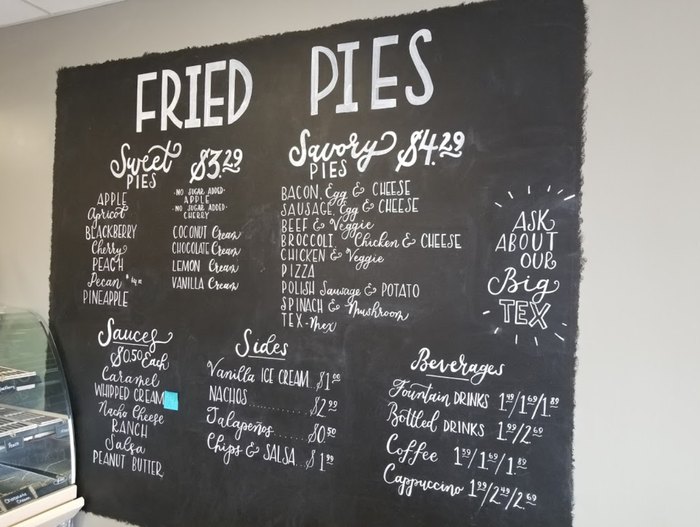 FRIED PIES
Sweet PIES $3.29
APPLE
Apricot
BLACKBERRY
Cherry
PEACH
Pecan
PINEAPPLE
·NO SUGAR ADDED·
APPLE
·NO SUGAR ADDED·
CHERRY
COCONUT Cream
CHOCOLATE Cream
LEMON Cream
VANILLA Cream
Savory PIES $4.29
BACON, Egg & CHEESE
SAUSAGE, Egg & CHEESE
BEEF & Veggie
BROCCOLI, Chicken & CHEESE
CHICKEN & Veggie
PIZZA
POLISH Sausage & POTATO
SPINACH & Mushroom
TEX-Mex
ASK
ABOUT
OUR
Big
TEX
Sauces
$0.50 Each
Caramel
WHIPPED CREAM
Nacho Cheese
RANCH
Salsa
PEANUT BUTTER
Sides
Vanilla ICE CREAM...$1.00
NACHOS............$2.99
Jalapeños.........$0.50
Chips & SALSA...$1.99
Beverages
Fountain DRINKS 1.49/1.69/1.89
Bottled DRINKS 1.99/2.69
Coffee 1.39/1.69/1.89
Cappuccino 1.99/2.49/2.69